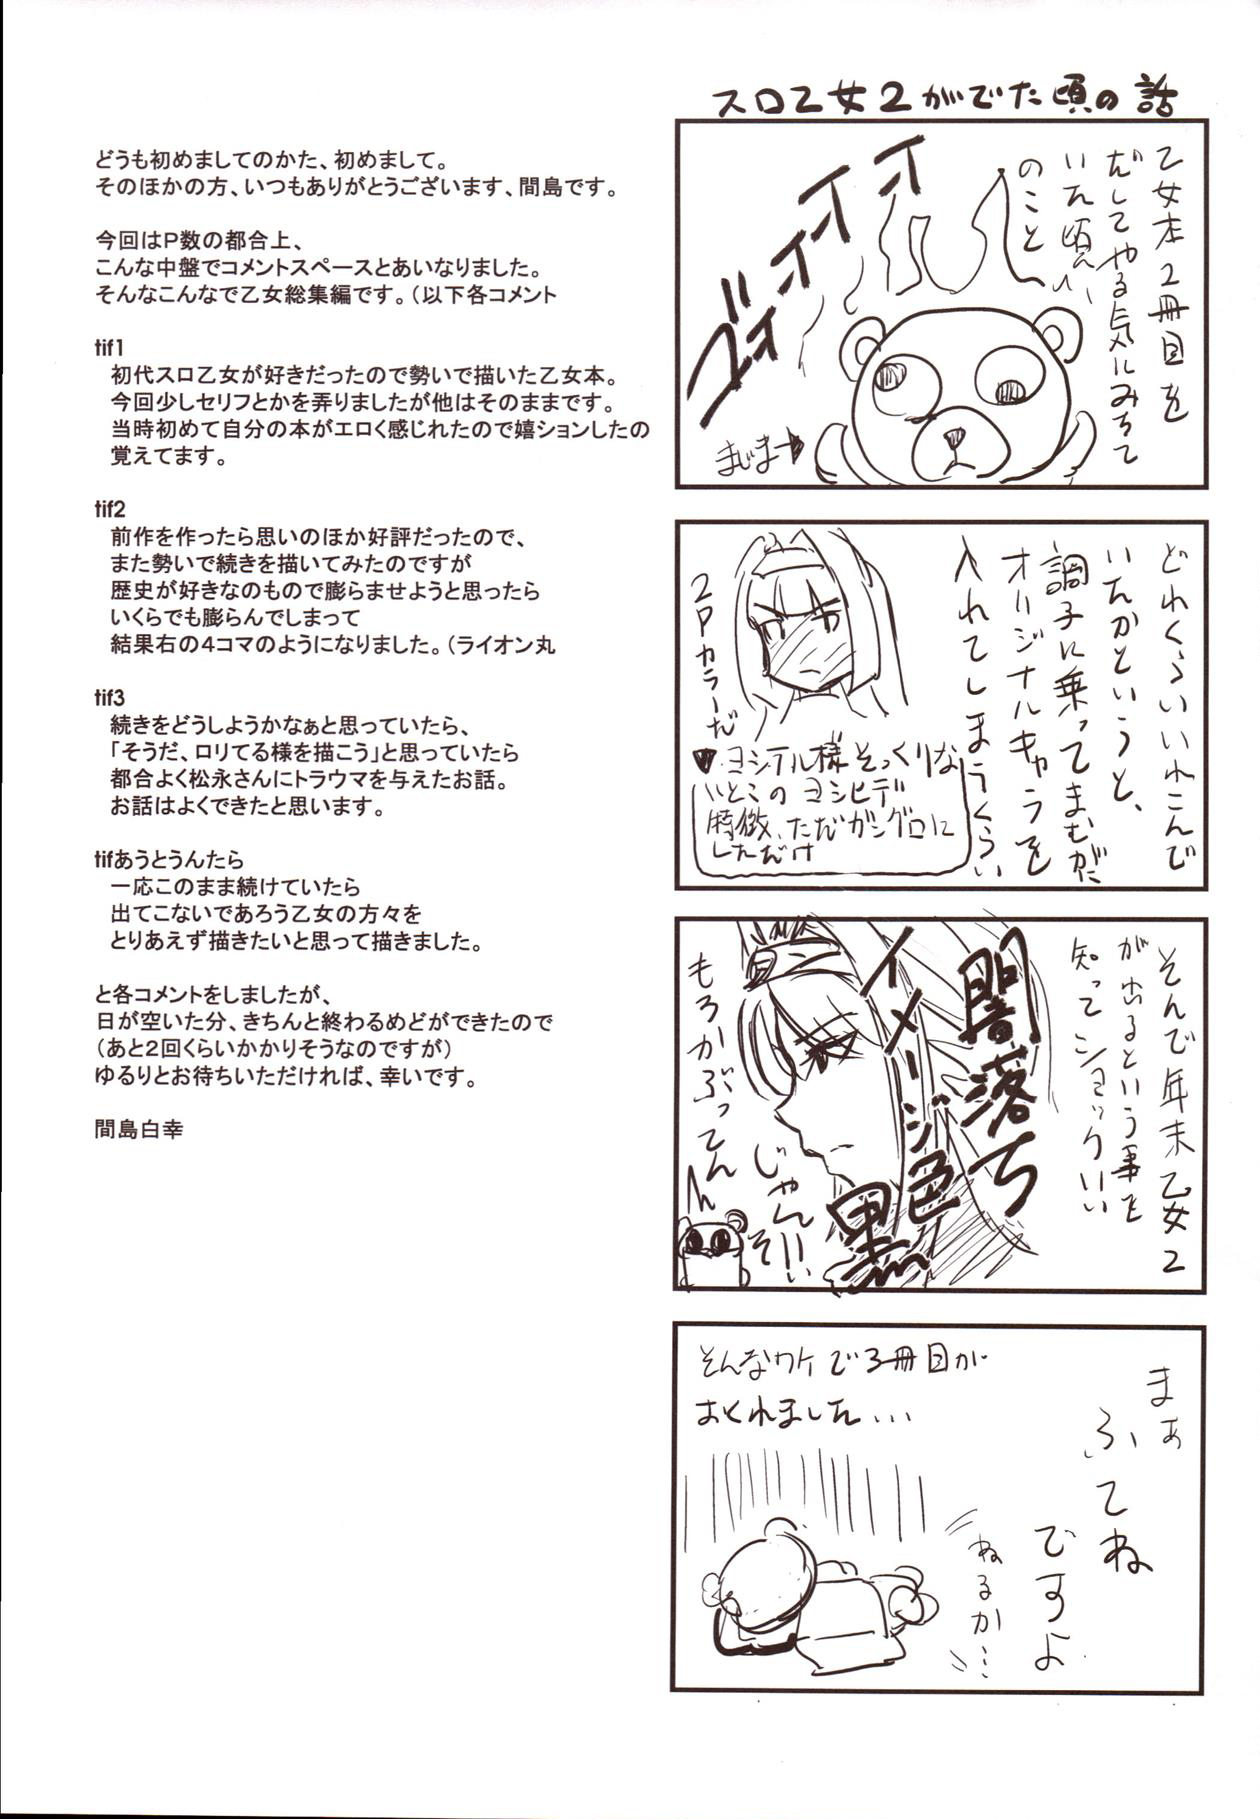 どうも初めましてのかた、初めまして。
そのほかの方、いつもありがとうございます、間島です。
今回はP数の都合上、
こんな中盤でコメントスペースとあいなりました。
そんなこんなで乙女総集編です。（以下各コメント
tif1
初代スロ乙女が好きだったので勢いで描いた乙女本。
今回少しセリフとかを弄りましたが他はそのままです。
当時初めて自分の本がエロく感じれたので嬉ションしたの
覚えてます。
tif2
前作を作ったら思いのほか好評だったので、
また勢いで続きを描いてみたのですが
歴史が好きなのもので膨らませようと思ったら
いくらでも膨らんでしまって
結果右の4コマのようになりました。（ライオン丸
tif3
続きをどうしようかなぁと思っていたら、
「そうだ、ロリてる様を描こう」と思っていたら
都合よく松永さんにトラウマを与えたお話。
お話はよくできたと思います。
tifあうとうんたら
一応このまま続けていたら
出てこないであろう乙女の方々を
とりあえず描きたいと思って描きました。
と各コメントをしましたが、
日が空いた分、きちんと終わるめどができたので
（あと2回くらいかかりそうなのですが）
ゆるりとお待ちいただければ、幸いです。
間島白幸
スロ乙女2がでた頃の話
乙女本2冊目を
だしてやる気にみちて
いた頃
のこと
ゴオォォォ
まじま→
どれくらいいれこんで
いたかというと、
調子に乗ってまむがに
オリジナルキャラを
入れてしまうくらい
2Pカラーだ
♥ヨシテル様そっくりな
いとこのヨシヒデ
特徴、ただガングロに
しただけ
そんで年末乙女2
が出るという事を
知ってショックいい
闇落ち
イメージ色
黒
もろかぶってんん
じゃん!!
そ!!
まぁ
ふてね
ですよ
そんなワケで3冊目が
おくれました...
ねるか...